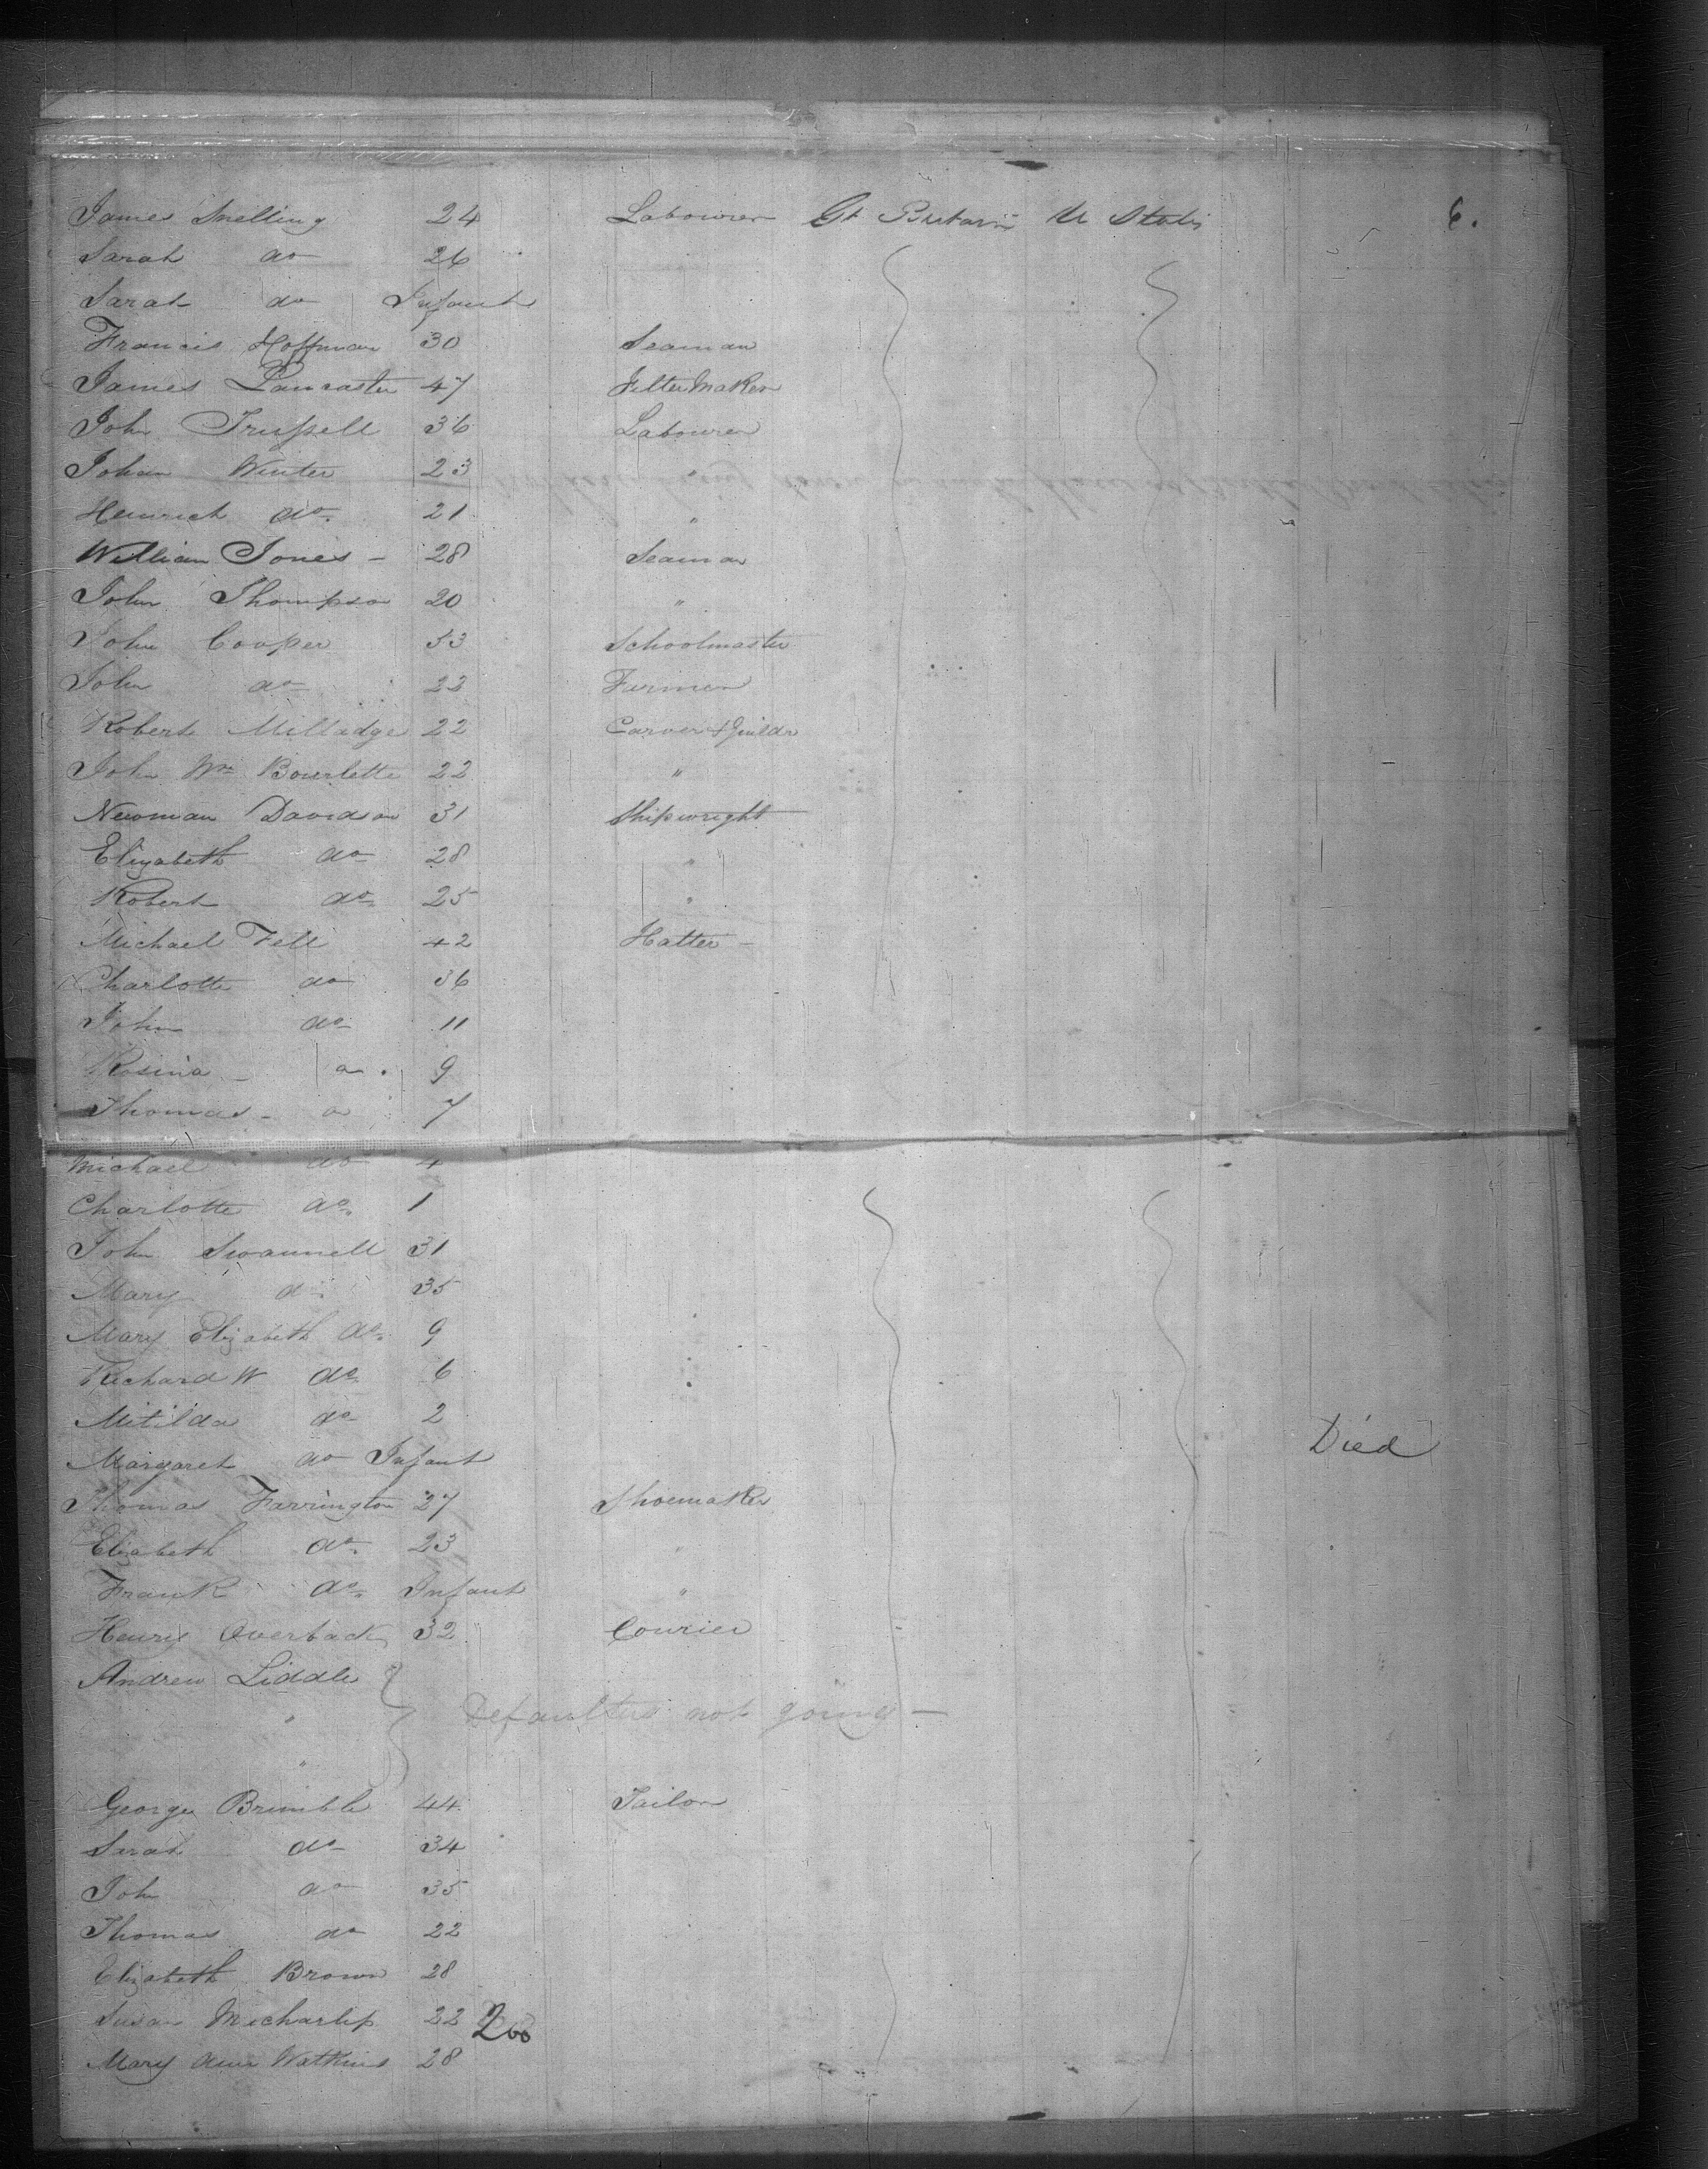 James Snelling 24 Labourer Gt Britain U States 6.
Sarah do 26
Sarah do Infant
Francis Hoffman 30 Seaman
James Lancaster 47 Filter Maker
John Trussell 36 Labourer
Johan Winter 23 "
Heinrich do 21 "
William Jones - 28 Seaman
John Thompson 20 "
John Cooper 53 Schoolmaster
John do 22 Farmer
Robert Milladge 22 Carver & Guilder
John Wm Bourlette 22 "
Newman Davidson 31 Shipwright
Elizabeth do 28 "
Robert do 25 "
Michael Fell 42 Hatter -
Charlotte do 36
John do 11
Rosina - do 9
Thomas - do 7
Michael do 4
Charlotte do 1
John Swannell 31
Mary do 35
Mary Elizabeth do 9
Richard W do 6
Mitilda do 2
Margaret do Infant Died
Thomas Farrington 27 Shoemaker
Elizabeth do 23 "
Frank do Infant "
Henry Overback 32 Courier
Andrew Liddle
" Defaulters not going -
"
George Brimble 44 Tailor
Sarah do 34
John do 35
Thomas do 22
Elizabeth Brown 28
Susan 22 200
Mary Ann Watkins 28